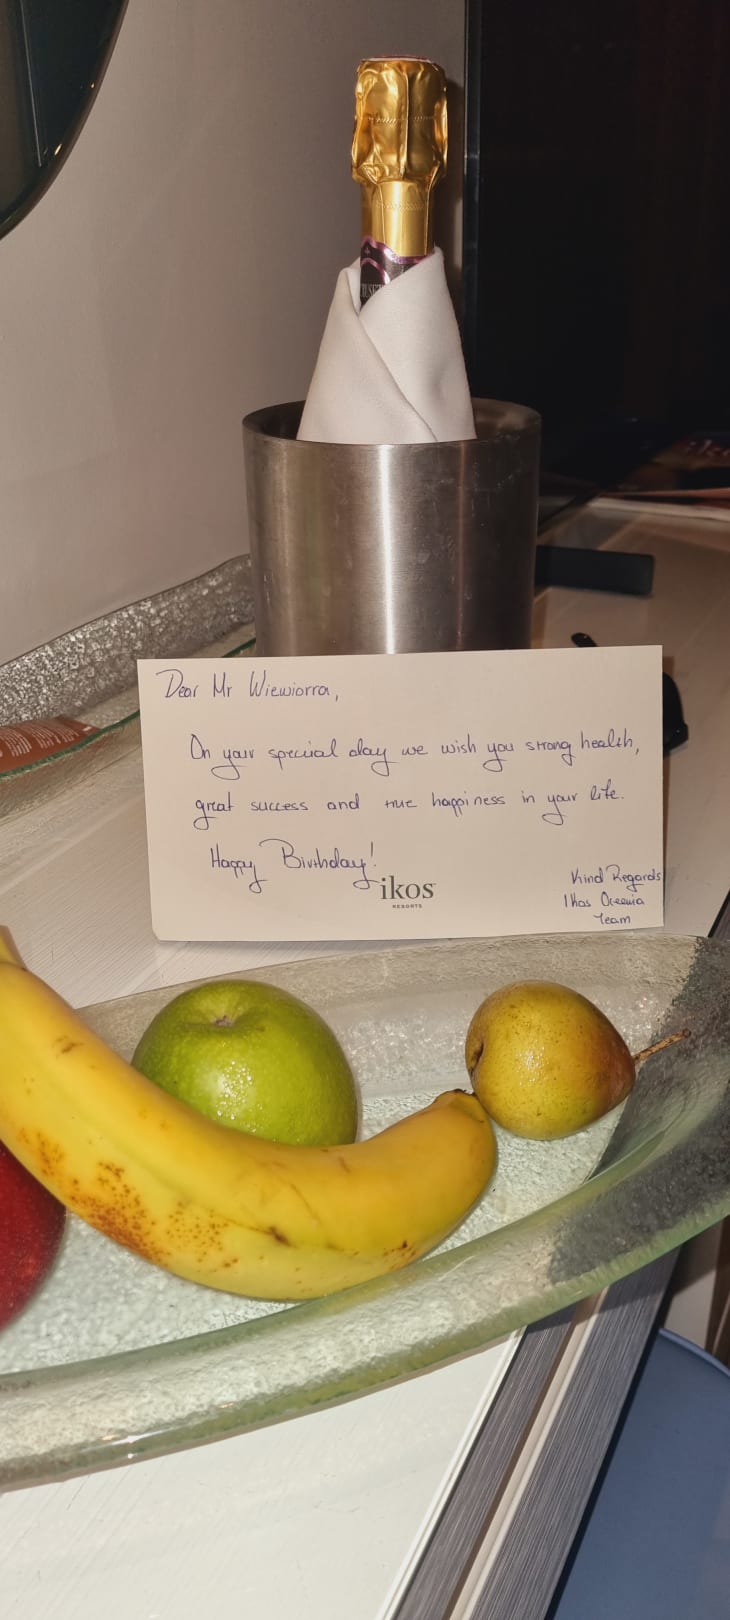 Dear Mr Wiewiorra,
On your special day we wish you strong health,
great success and true happiness in your life.
Happy Birthday!
ikos
RESORTS
Kind Regards
Ikos Oceania
Team